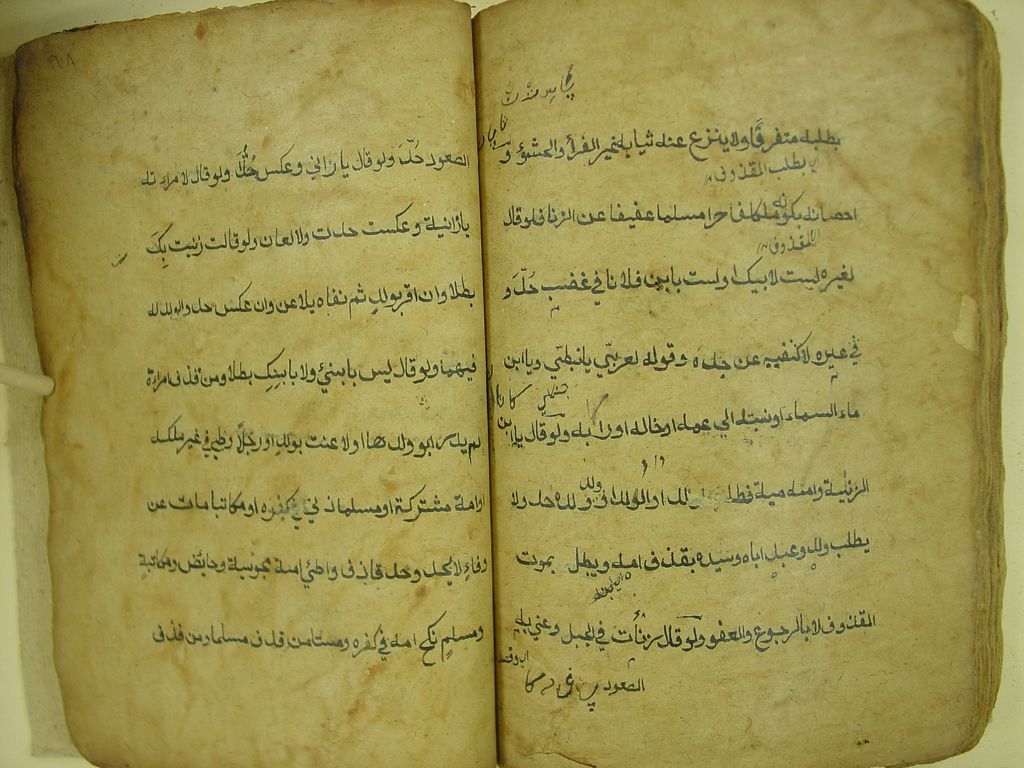 بطلبه متفرقا ولا ينزع عنه ثيابه غير الفرأ والحشو و
اي بطلب المقذوف
احصانه بكونه مكلفا حرا مسلما عفيفا عن الزنا فلو قال
المقذوف
لغيره لست لابيك او لست بابن فلان في غضب حد و
في غيره لا كنفيه عن جده وقوله لعربي يا نبطي ويا ابن
ماء السماء او نسبته الى عمه او خاله او رابه ولو قال يا ابن
الزانية وامه ميتة فطلب الوالد او الولد او ولده حد ولا
يطلب ولد وعبد اباه وسيده بقذف امه ويبطل بموت
المقذوف لا بالرجوع والعفو ولو قال زنأت في الجبل وعنى به
الصعود
الصعود حد ولو قال يا زاني وعكس حدا ولو قال لامراته
يا زانية وعكست حدت ولا لعان ولو قالت زنيت بك
بطلا وان اقر بولد ثم نفاه يلاعن وان عكس حد والولد له
فيهما ولو قال ليس بابني ولا بابنك بطلا ومن قذف امراة
لم يدر ابو ولدها او لاعنت بولد او رجلا وطئ في غير ملكه
او امة مشتركة او مسلما زنى في كفره او مكاتبا مات عن
وفاء لا يحد وحد قاذف واطئ امة مجوسية وحائض ومكاتبة
ومسلم نكح امه في كفره ومستامن قذف مسلما ومن قذف